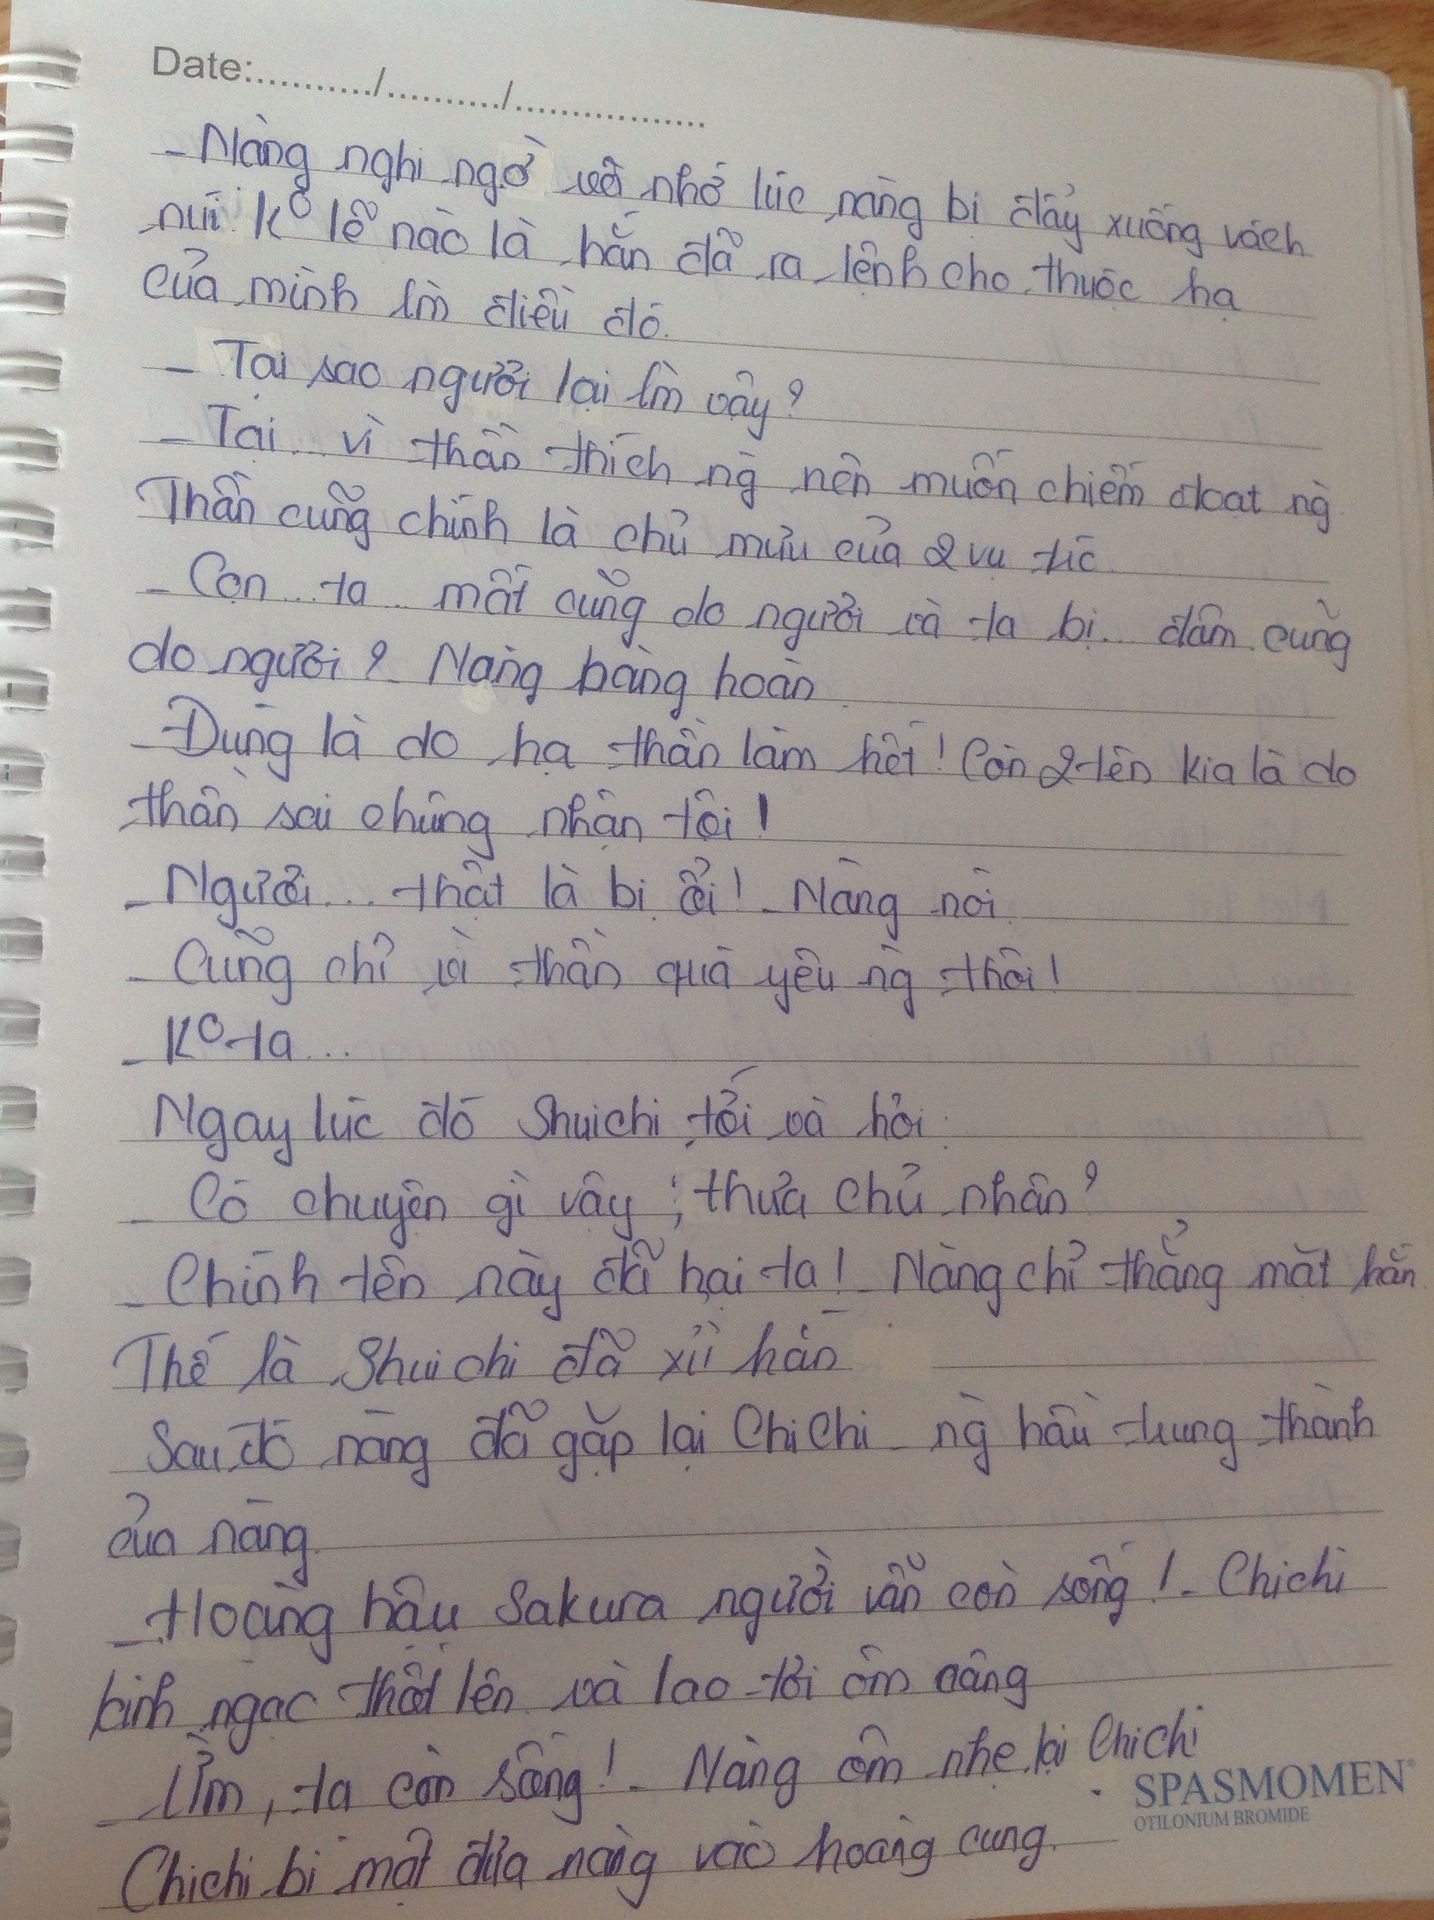 Date:........../........../.................
- Nàng nghi ngờ và nhớ lúc nàng bị đẩy xuống vách
núi. K° lẽ nào là hắn đã ra lệnh cho thuộc hạ
của mình lm điều đó.
- Tại sao ngươi lại lm vậy?
- Tại.. vì thần thích ng nên muốn chiếm đoạt ng
Thần cũng chính là chủ mưu của 2 vụ trc
- Con.. ta.. mất cũng do ngươi và ta bị.. đâm cũng
do ngươi? - Nàng bàng hoàn
- Đúng là do hạ thần làm hết! Còn 2 tên kia là do
thần sai chúng nhận tội!
- Ngươi... thật là bỉ ổi! - Nàng nói
- Cũng chỉ vì thần quá yêu ng thôi!
- K° ta...
Ngay lúc đó Shuichi tới và hỏi:
- Có chuyện gì vậy, thưa chủ nhân?
- Chính tên này đã hại ta! - Nàng chỉ thẳng mặt hắn
Thế là Shuichi đã xử hắn
Sau đó nàng đã gặp lại ChiChi - ng hầu trung thành
của nàng.
- Hoàng hậu Sakura người vẫn còn sống! - Chichi
kinh ngạc thốt lên và lao tới ôm nàng
- Ừm, ta còn sống! - Nàng ôm nhẹ lại Chichi.
SPASMOMEN®
OTILONIUM BROMIDE
Chichi bí mật đưa nàng vào hoàng cung.